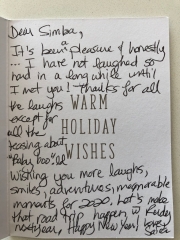 Dear Simba,
It's been a pleasure & honestly
... I have not laughed so
hard in a long while until
I met you! Thanks for all
the laughs WARM
except for
all the HOLIDAY
teasing about
WISHES
Wishing you more laughs,
smiles, adventures, memorable
moments for 2020. Let's make
that road trip happen w
next year, Happy New Year!